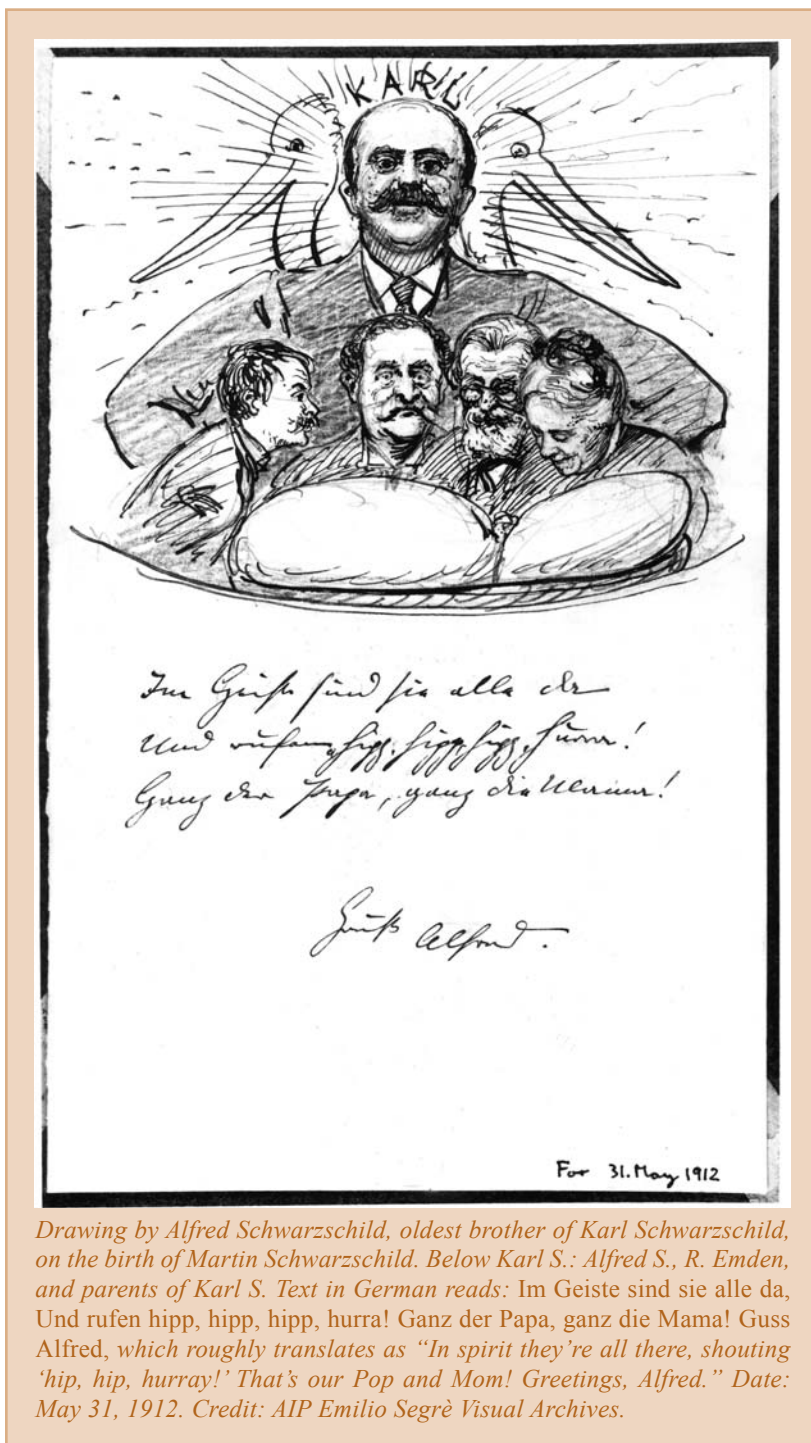 KARL
Im Geiste sind sie alle da
Und rufen hipp, hipp, hipp, hurra!
Ganz der Papa, ganz die Mama!
Gruß Alfred.
For 31. May 1912
Drawing by Alfred Schwarzschild, oldest brother of Karl Schwarzschild,
on the birth of Martin Schwarzschild. Below Karl S.: Alfred S., R. Emden,
and parents of Karl S. Text in German reads: Im Geiste sind sie alle da,
Und rufen hipp, hipp, hipp, hurra! Ganz der Papa, ganz die Mama! Guss
Alfred, which roughly translates as “In spirit they’re all there, shouting
‘hip, hip, hurray!’ That’s our Pop and Mom! Greetings, Alfred.” Date:
May 31, 1912. Credit: AIP Emilio Segrè Visual Archives.